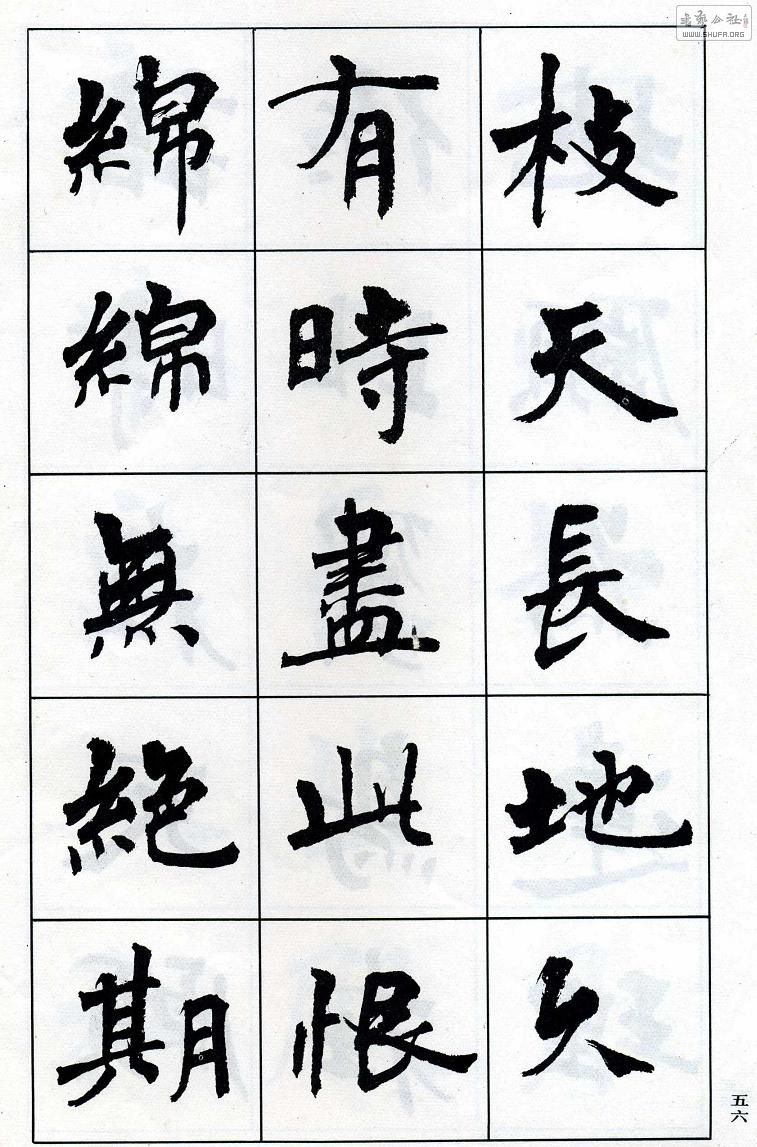 枝天長地久
有時盡此恨
綿綿無絕期
五六
WWW.SHUFA.ORG